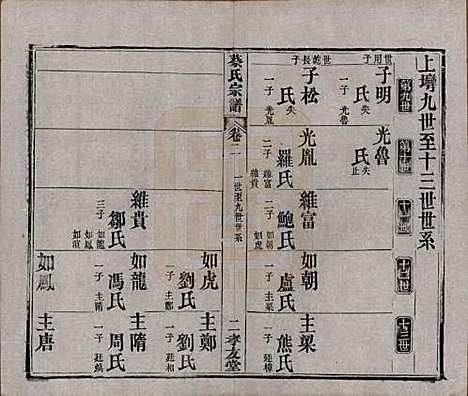 上塆九世至十三世世系
第九世
第十世
十一世
十二世
十三世
世用子
子明
氏失
一子 光魯
光魯
氏失
止
世乾長子
子松
氏失
一子 光胤
光胤
羅氏
二子 維富
維貴
維富
鮑氏
二子 如朝
如虎
如朝
盧氏
一子 主梁
主梁
熊氏
一子 廷樟
蔡氏宗譜
卷二
一世至九世世系
二
孝友堂
如虎
劉氏
一子 主鄭
主鄭
劉氏
一子 廷相
維貴
鄒氏
三子 如龍
如鳳
如龍
馮氏
一子 主隋
主隋
周氏
一子
如鳳
主唐